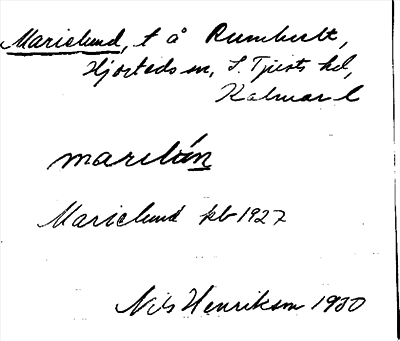 Marielund, t å Rumhult,
Hjorteds sn, S. Tjusts hd,
Kalmar l
marelún
Marielund kb 1927
Nils Henrikson 1930